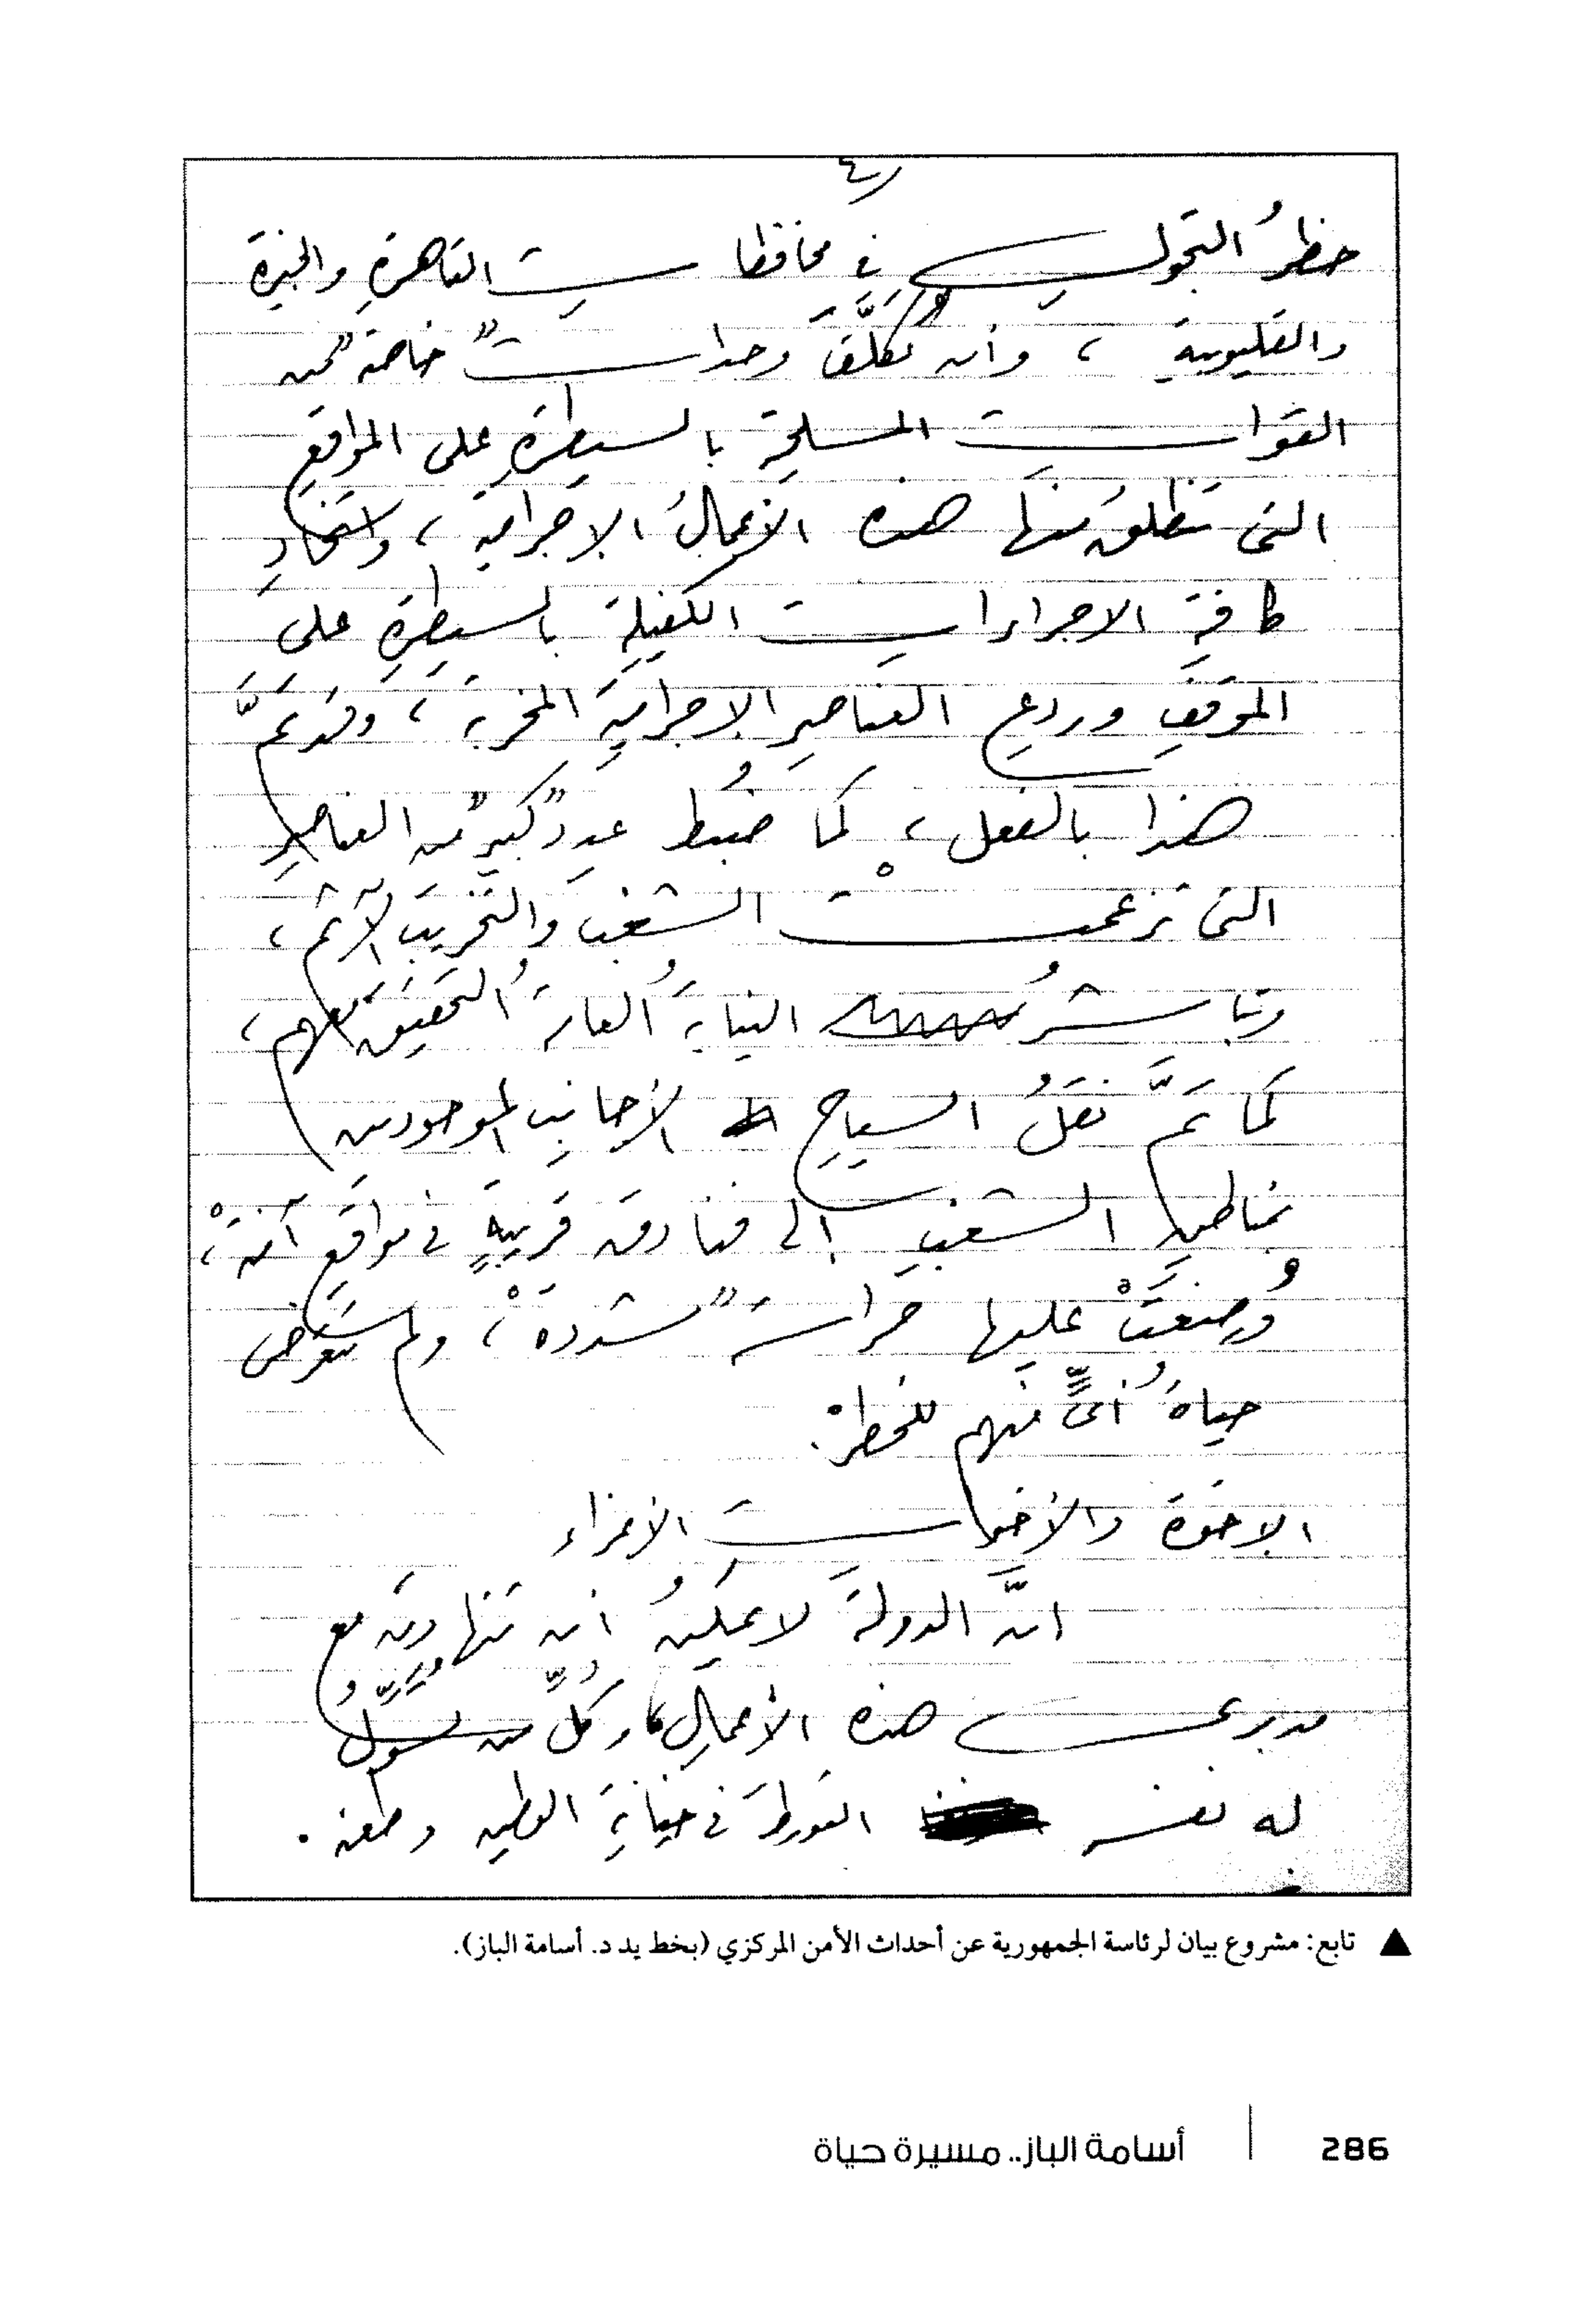 ٤
حظرُ التجولِ في محافظاتِ القاهرةِ والجيزةِ
والقليوبيةِ ، وأن تُكلَّفَ وحداتٌ خاصةٌ من
القواتِ المسلحةِ بالسيطرةِ على المواقعِ
التى تنطلقُ منها هذه الأعمالُ الاجراميةُ ، واتخاذِ
كافةِ الاجراءاتِ الكفيلةِ بالسيطرةِ على
الموقفِ وردعِ العناصرِ الاجراميةِ المخربةِ ، وقد تمَّ
هذا بالفعل ، كما ضُبط عددٌ كبيرٌ من العناصرِ
التى تزعمتْ الشغبَ والتخريبَ الآثمَ ،
وتباشرُ النيابةُ العامةُ التحقيقَ معهم ،
كما تمَّ نقلُ السياحِ الأجانبِ الموجودين
بمناطقِ الشغبِ الى فنادق قريبةٍ في مواقعَ آمنةْ ،
وُضعتْ عليها حراسةٌ مشددةْ ، ولم تتعرضْ
حياةُ أىٍّ منهم للخطرْ .
الاخوة والأخواتِ الأعزاء
انَّ الدولةَ لا يمكنُ أن تتهاونَ مع
مدبرى هذه الأعمالِ ، وكلِّ من تسوِّلُ
له نفسه التورطَ في خيانةِ الوطنِ وطعنه .
▲ تابع: مشروع بيان لرئاسة الجمهورية عن أحداث الأمن المركزي (بخط يد د. أسامة الباز).
286 | أسامة الباز.. مسيرة حياة